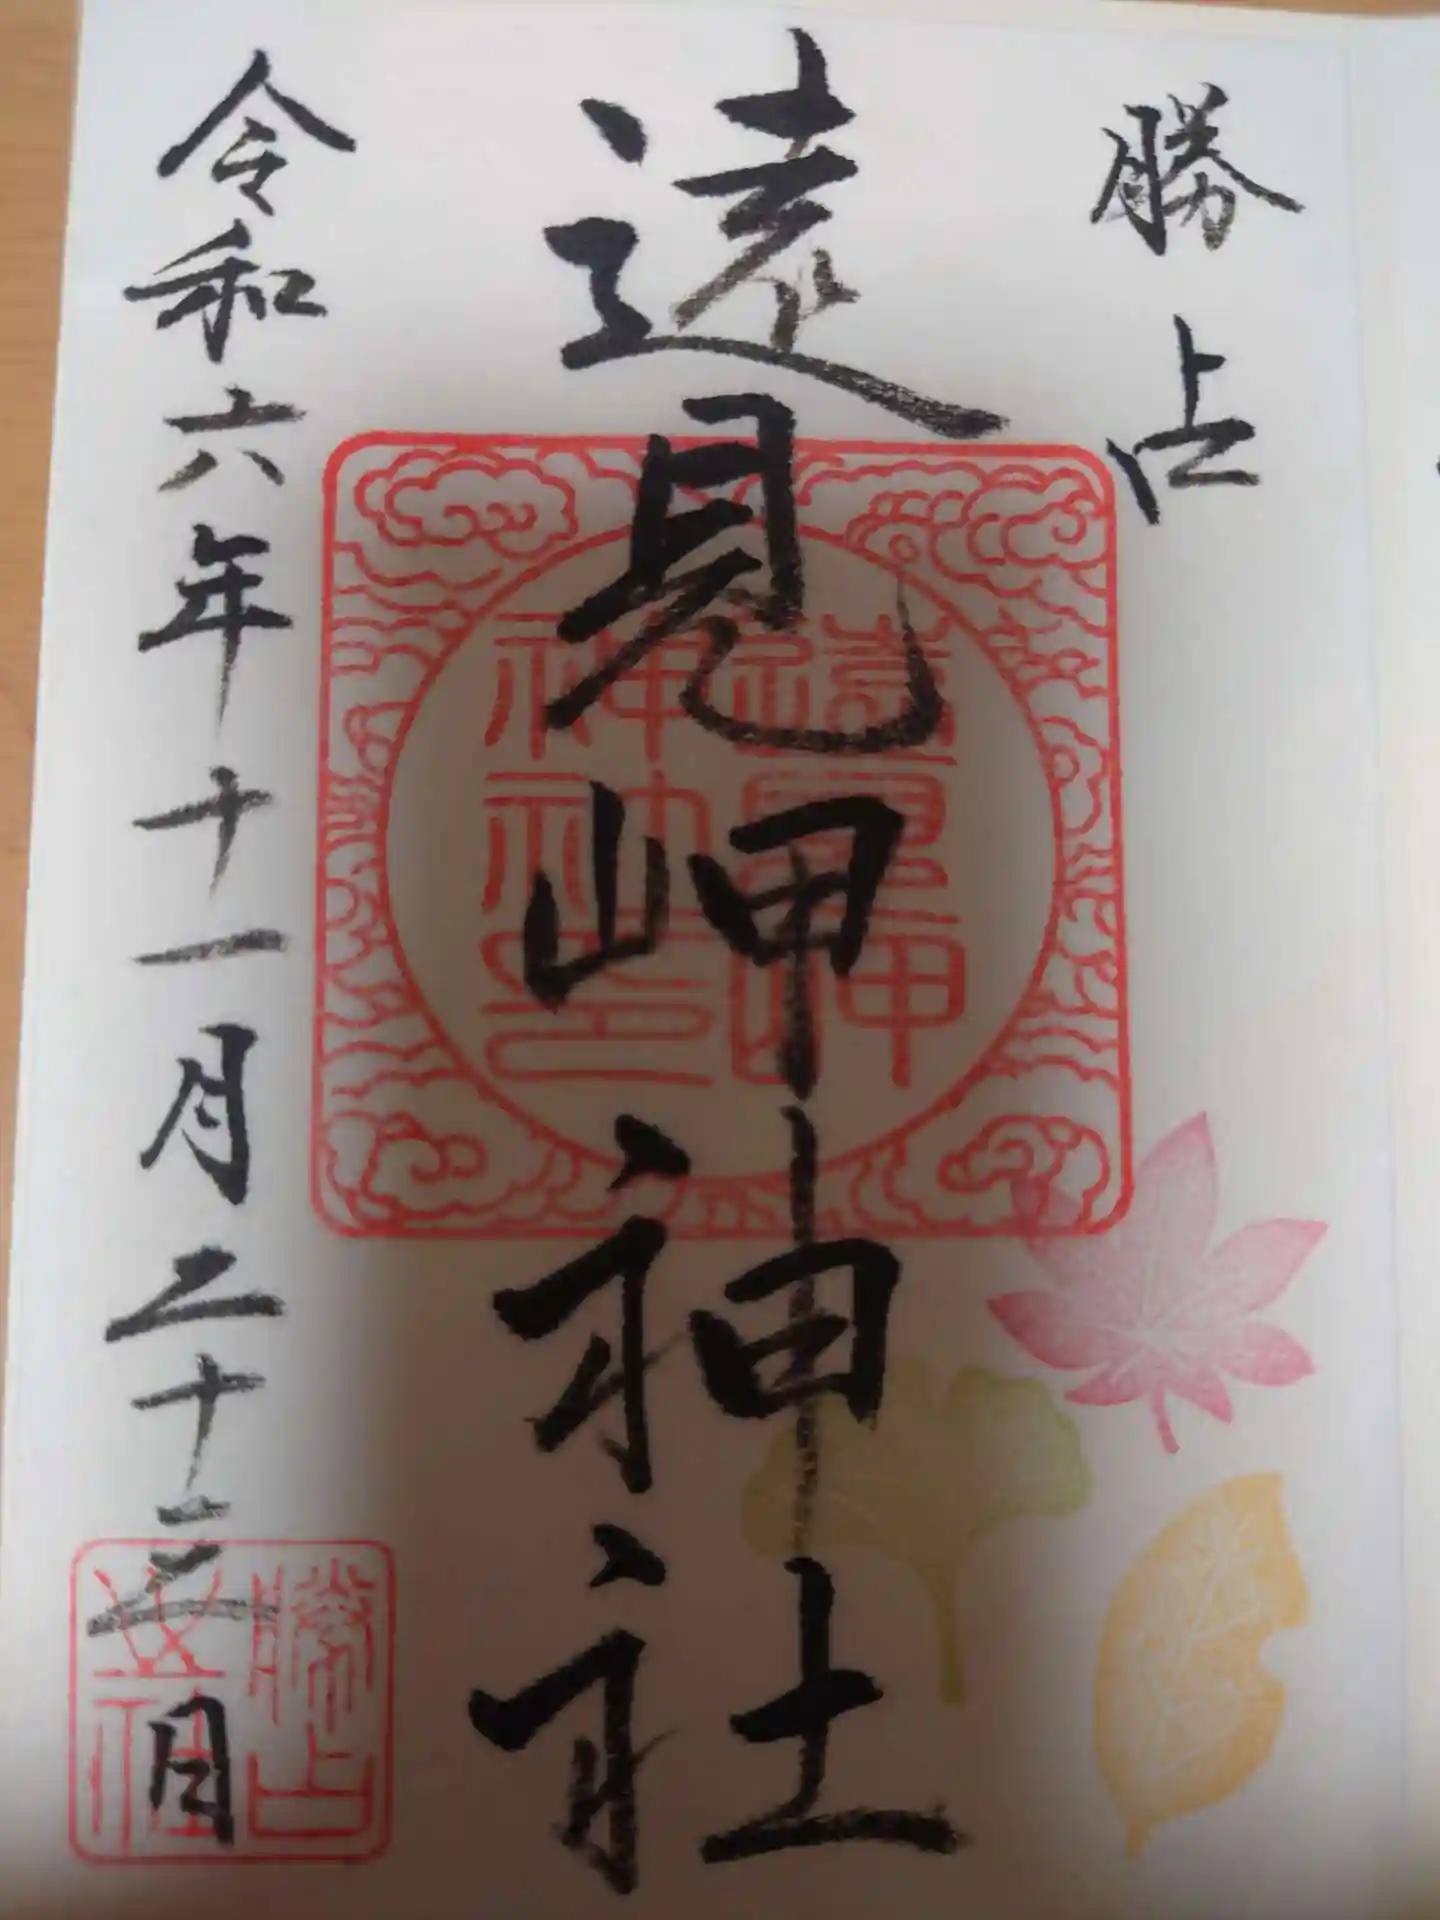 勝占
遠見岬神社
令和六年十一月二十三日
遠見岬
神社印
勝占